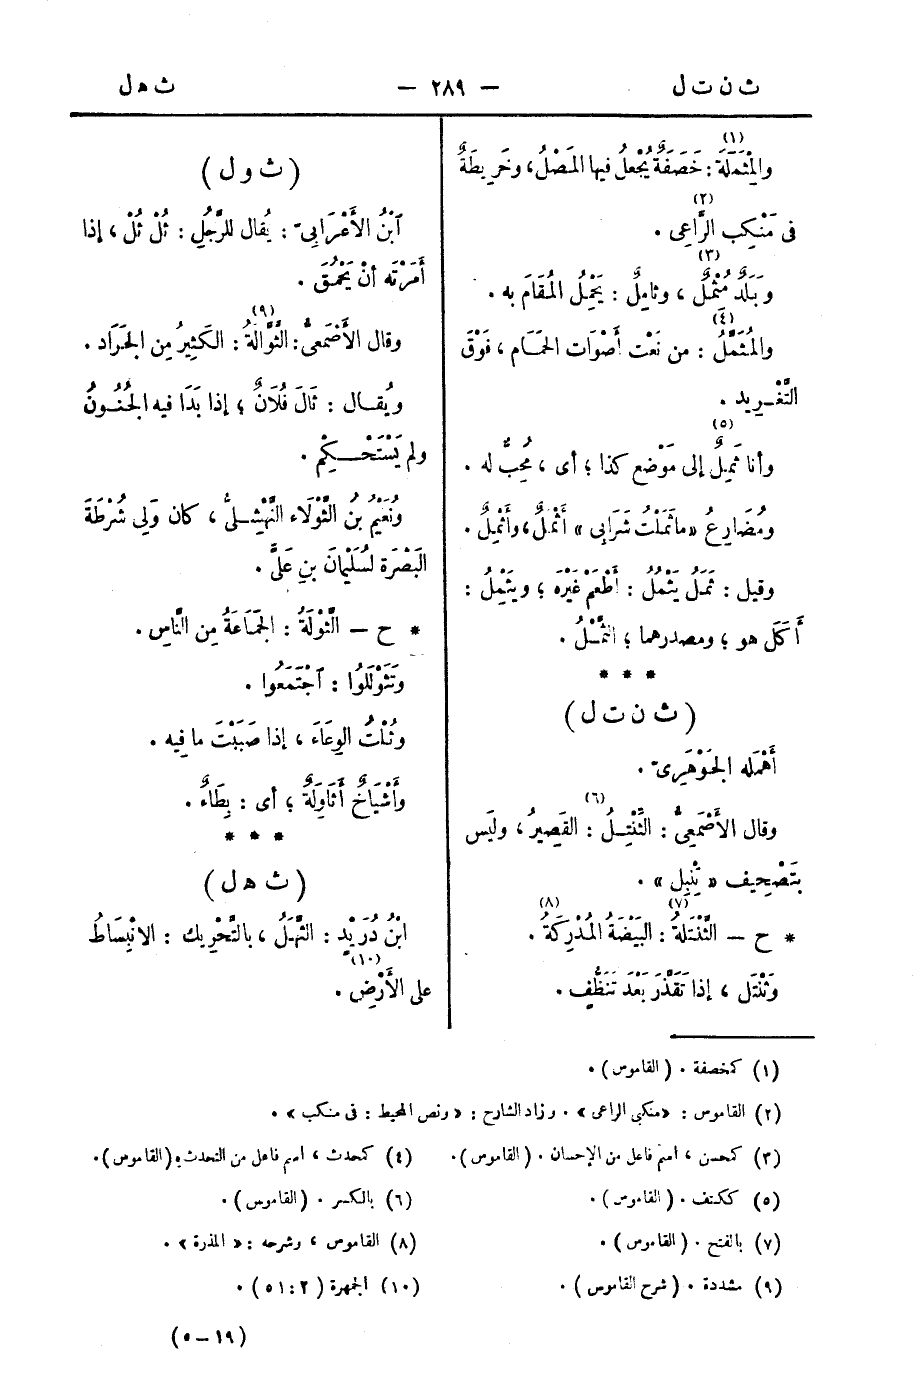 ث ن ت ل — ٢٨٩ — ث ه ل
والمِثْمَلَةُ (١) : خَصَفَةٌ يُجْعلُ فيها المَصْلُ، وخَرِيطَةٌ
فى مَنْكِب (٢) الرَّاعِى .
وبَلَدٌ مُثْمِلٌ (٣) ، وثامِلٌ : يَحْمِلُ المُقَامَ به .
والمُثَمِّلُ (٤) : من نَعْت أَصْوَات الحَمَام ، فَوْقَ
التَّغْرِيد .
وأنا ثَمِلٌ (٥) إلى مَوْضع كذا ؛ أى ، مُحِبٌّ له .
ومُضَارِعُ «ماثَمَلْتُ شَرَابِى» أَثْمُلُ، وأَثْمِلُ .
وقيل : ثَمَلَ يَثْمُلُ : أَطْعَمَ غَيْرَه ؛ ويَثْمِلُ :
أَكَلَ هو ؛ ومصدرهما ؛ الثَّمْلُ .
* * *
(ث ن ت ل)
أَهْمَلَه الجَوْهَرِىّ .
وقال الأَصْمَعِىُّ : الثِّنْتِلُ (٦) : القَصِيرُ ، ولَيس
بتَصْحِيف « تِنْبِل » .
* ح — الثَّنْتَلَةُ (٧) : البَيْضَةُ المُدْرِكَةُ (٨) .
وثَنْتَل ، إذا تَقَذَّرَ بَعْدَ تَنَظُّفٍ .
(ث و ل)
ٱبْنُ الأَعْرَابِىّ : يُقال للرَّجُلِ : ثُلْ ثُلْ ، إذا
أَمَرْتَه أنْ يَحْمُقَ .
وقال الأَصْمَعىُّ : الثَّوَّالَةُ (٩) : الكَثِيرُ مِن الجَرَاد .
ويُقـال : ثَالَ فُلَانٌ ؛ إذا بَدَا فيه الجُنُـونُ
ولم يَسْتَحْـكِمْ .
ونُعَيْمُ بنُ الثَّوْلَاء النَّهْشِـلىُّ ، كان وَلِىَ شُرْطَةَ
البَصْرَة لسُلَيْمَانَ بنِ عَلىٍّ .
* ح — الثَّوْلَةُ : الجَمَاعَةُ مِن النَّاسِ .
وتَثَوْلَلُوا : ٱجْتَمَعُوا .
وثُلْتُ الوِعَاءَ ، إذا صَبَبْتَ ما فِيه .
وأَشْيَاخٌ أَثَاوِلَةٌ ؛ أى : بِطَاءٌ .
* * *
(ث ه ل)
ابْنُ دُرَيْدٍ : الثَّهَلُ ، بالتَّحْرِيك : الانْبِسَاطُ
على الأَرْضِ (١٠) .
(١) كخصفة . (القاموس) .
(٢) القاموس : «منكبى الراعى» . وزاد الشارح : «ونص المحيط : فى منكب» .
(٣) كمحسن ، اسم فاعل من الإحسان . (القاموس) . (٤) كمحدث ، اسم فاعل من التحدث . (القاموس) .
(٥) ككتف . (القاموس) . (٦) بالكسر . (القاموس) .
(٧) بالفتح . (القاموس) . (٨) القاموس ، وشرحه : « المذرة » .
(٩) مشددة . (شرح القاموس) . (١٠) الجمهرة (٢ : ٥١) .
(١٩ – ٥)